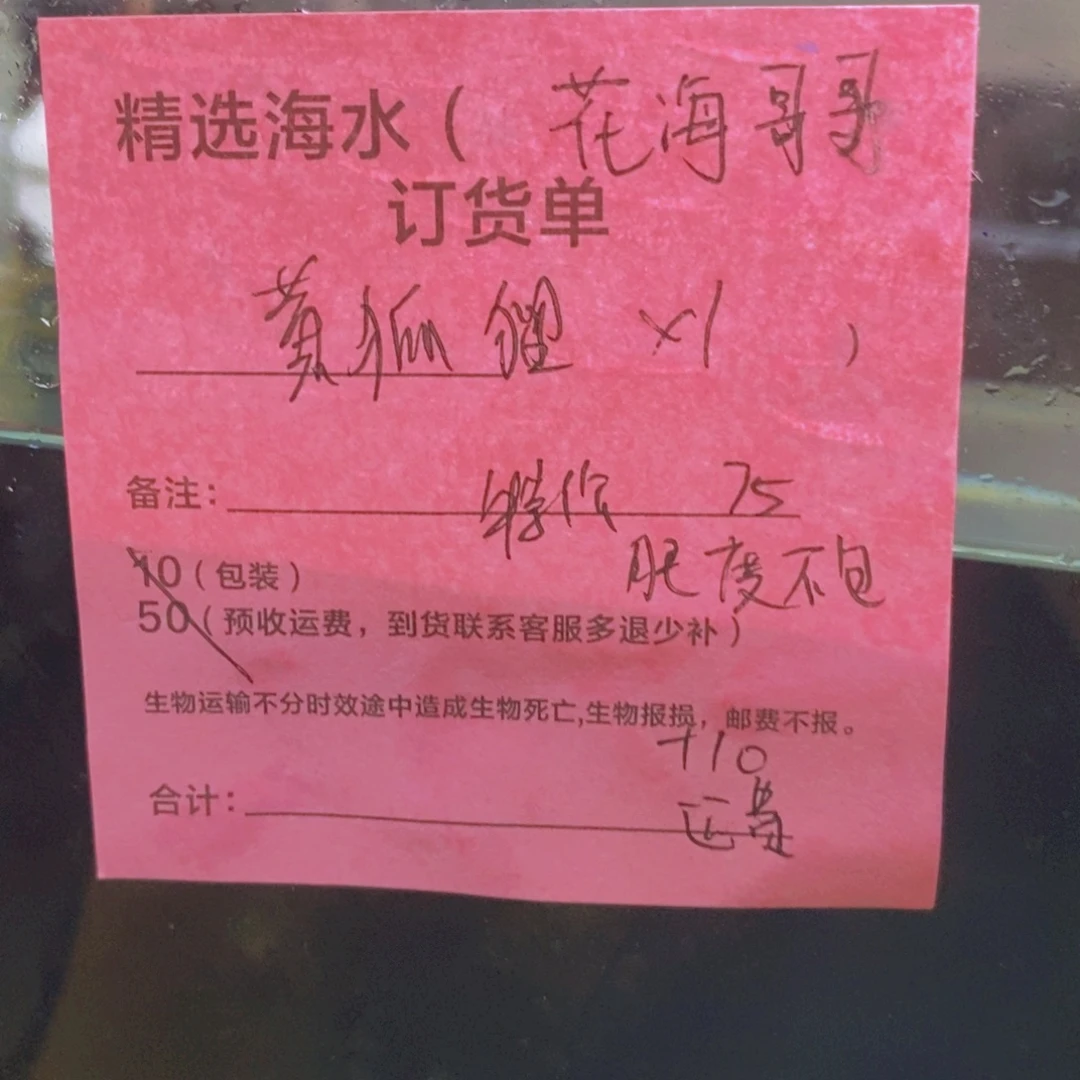 精选海水( 花海哥哥
订货单
黄狐狸 ×1 )
备注: 特价 75
肥度不包
10(包装)
50(预收运费，到货联系客服多退少补)
生物运输不分时效途中造成生物死亡,生物报损，邮费不报。
+10
合计: 运费